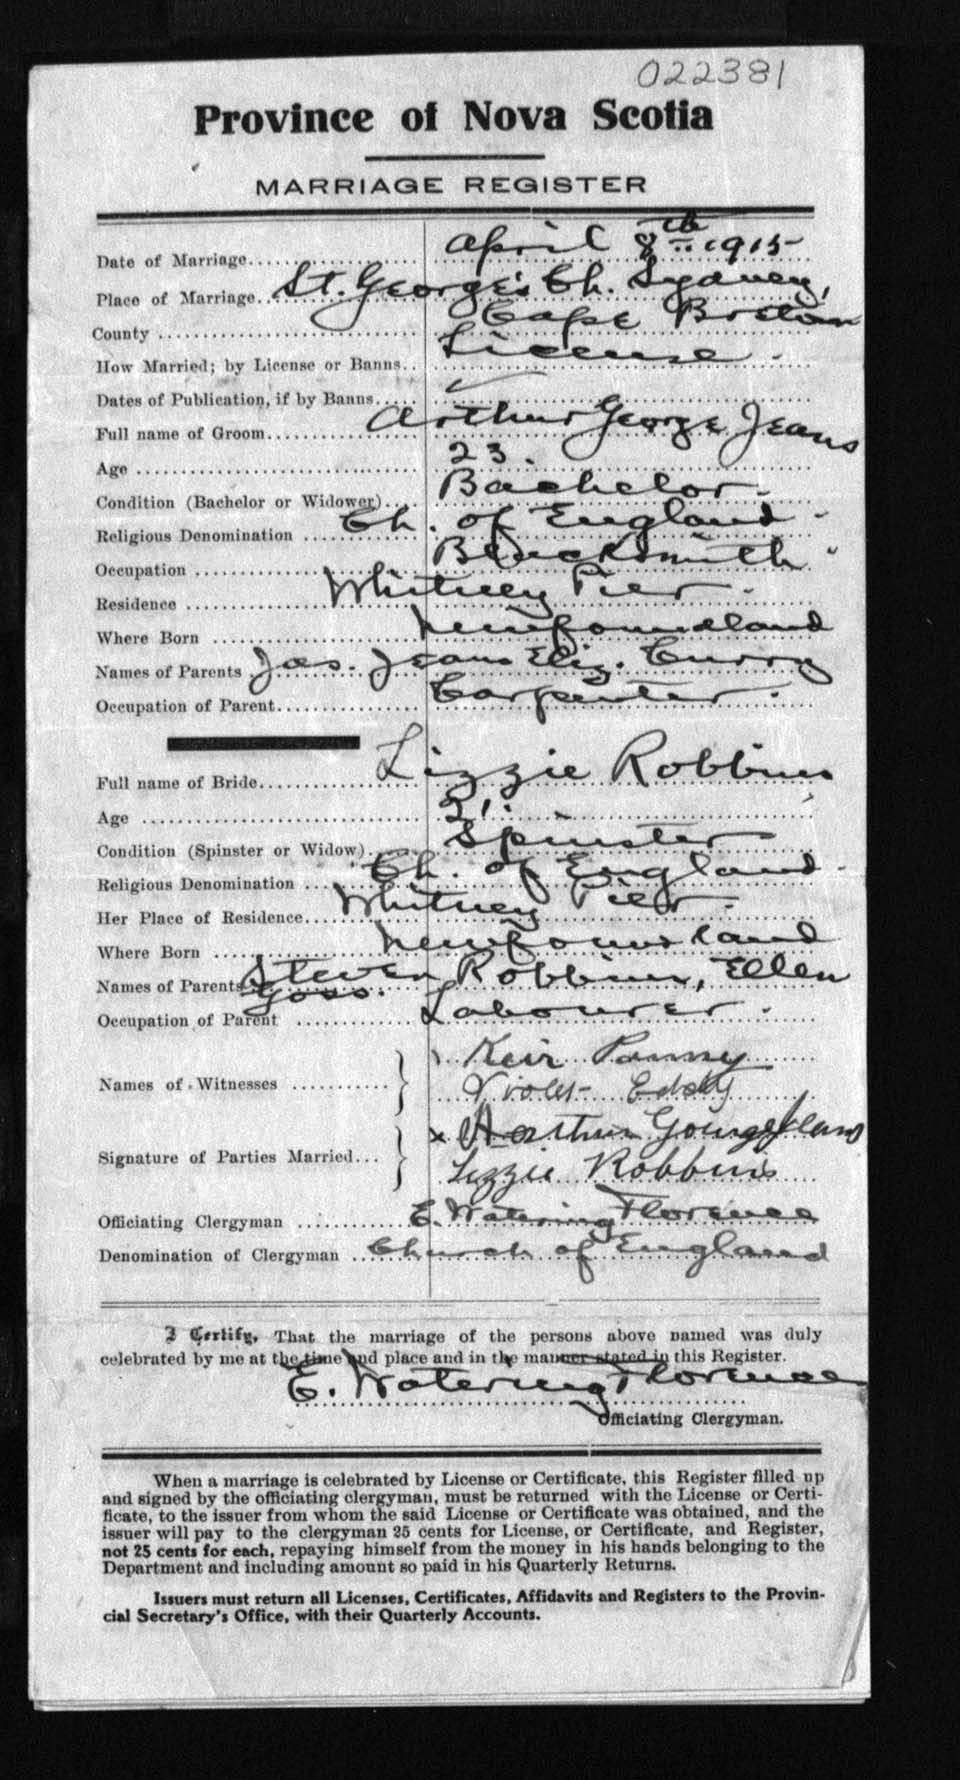 022381
Province of Nova Scotia
MARRIAGE REGISTER
Date of Marriage April 8th 1915
Place of Marriage St. George's Ch. Sydney,
County Cape Breton
How Married; by License or Banns License
Dates of Publication, if by Banns
Full name of Groom Arthur George Jeans
Age 23.
Condition (Bachelor or Widower) Bachelor
Religious Denomination Ch. of England
Occupation Blacksmith
Residence Whitney Pier
Where Born Newfoundland
Names of Parents Jas. Jeans Eliz. Curry
Occupation of Parent Carpenter
Full name of Bride Lizzie Robbins
Age 21.
Condition (Spinster or Widow) Spinster
Religious Denomination Ch. of England
Her Place of Residence Whitney Pier
Where Born Newfoundland
Names of Parents Steven Robbins, Ellen
Goss.
Occupation of Parent Labourer
Names of Witnesses
Violet Eddy
Signature of Parties Married x Arthur George Jeans
Lizzie Robbins
Officiating Clergyman E. Watering Florence
Denomination of Clergyman Church of England
I Certify, That the marriage of the persons above named was duly
celebrated by me at the time and place and in the manner stated in this Register.
E. Watering Florence
Officiating Clergyman.
When a marriage is celebrated by License or Certificate, this Register filled up
and signed by the officiating clergyman, must be returned with the License or Certi-
ficate, to the issuer from whom the said License or Certificate was obtained, and the
issuer will pay to the clergyman 25 cents for License, or Certificate, and Register,
not 25 cents for each, repaying himself from the money in his hands belonging to the
Department and including amount so paid in his Quarterly Returns.
Issuers must return all Licenses, Certificates, Affidavits and Registers to the Provin-
cial Secretary's Office, with their Quarterly Accounts.